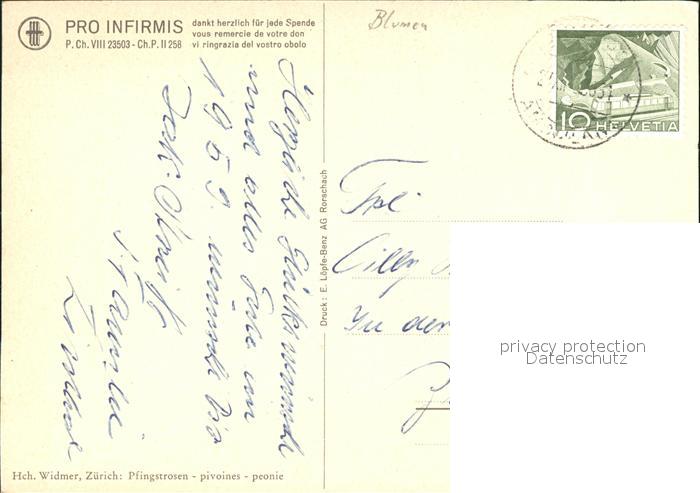 PRO INFIRMIS
P. Ch. VIII 23503 - Ch. P. II 258
dankt herzlich für jede Spende
vous remercie de votre don
vi ringrazia del vostro obolo
Blumen
10 HELVETIA
Herzliche Glückswünsche
und alles Gute im
1959. wünscht Dir
Familie
Druck: E. Löpfe-Benz AG Rorschach
Frl.
Cilly
In der
privacy protection
Datenschutz
Hch. Widmer, Zürich: Pfingstrosen - pivoines - peonie